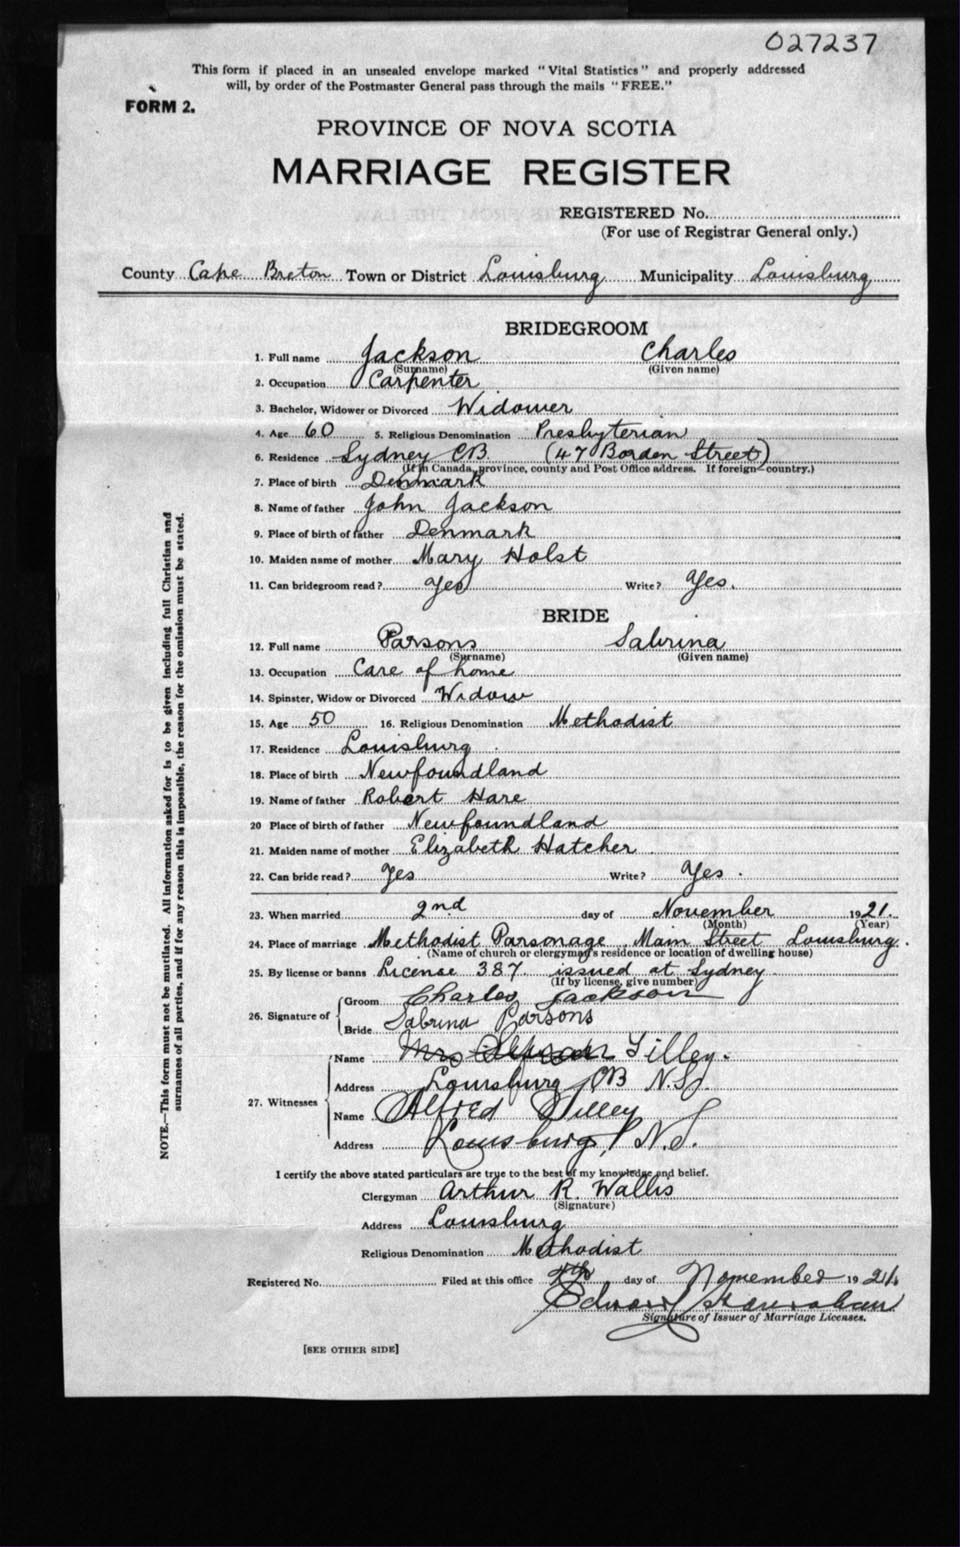 027237
This form if placed in an unsealed envelope marked "Vital Statistics" and properly addressed
will, by order of the Postmaster General pass through the mails "FREE."
FORM 2.
PROVINCE OF NOVA SCOTIA
MARRIAGE REGISTER
REGISTERED No.
(For use of Registrar General only.)
County Cape Breton Town or District Louisburg Municipality Louisburg
BRIDEGROOM
1. Full name Jackson Charles
(Surname) (Given name)
2. Occupation Carpenter
3. Bachelor, Widower or Divorced Widower
4. Age 60 5. Religious Denomination Presbyterian
6. Residence Sydney CB (47 Borden Street)
(If in Canada, province, county and Post Office address. If foreign—country.)
7. Place of birth Denmark
8. Name of father John Jackson
9. Place of birth of father Denmark
10. Maiden name of mother Mary Holst
11. Can bridegroom read? Yes Write? Yes.
BRIDE
12. Full name Parsons Sabrina
(Surname) (Given name)
13. Occupation Care of home
14. Spinster, Widow or Divorced Widow
15. Age 50 16. Religious Denomination Methodist
17. Residence Louisburg
18. Place of birth Newfoundland
19. Name of father Robert Hare
20 Place of birth of father Newfoundland
21. Maiden name of mother Elizabeth Hatcher
22. Can bride read? Yes Write? Yes.
23. When married 2nd day of November 1921.
(Month) (Year)
24. Place of marriage Methodist Parsonage Main Street Louisburg.
(Name of church or clergyman's residence or location of dwelling house)
25. By license or banns License 387 issued at Sydney
(If by license, give number)
26. Signature of Groom Charles Jackson
Bride Sabrina Parsons
27. Witnesses Name Mrs Tilley.
Address Louisburg CB N.S.
Name Alfred Tilley
Address Louisburg, N.S.
I certify the above stated particulars are true to the best of my knowledge and belief.
Clergyman Arthur R. Wallis
(Signature)
Address Louisburg
Religious Denomination Methodist
Registered No. Filed at this office day of November 1921
Edward
Signature of Issuer of Marriage Licenses.
[SEE OTHER SIDE]
NOTE.—This form must not be mutilated. All information asked for is to be given including full Christian and
surnames of all parties, and if for any reason this is impossible, the reason for the omission must be stated.